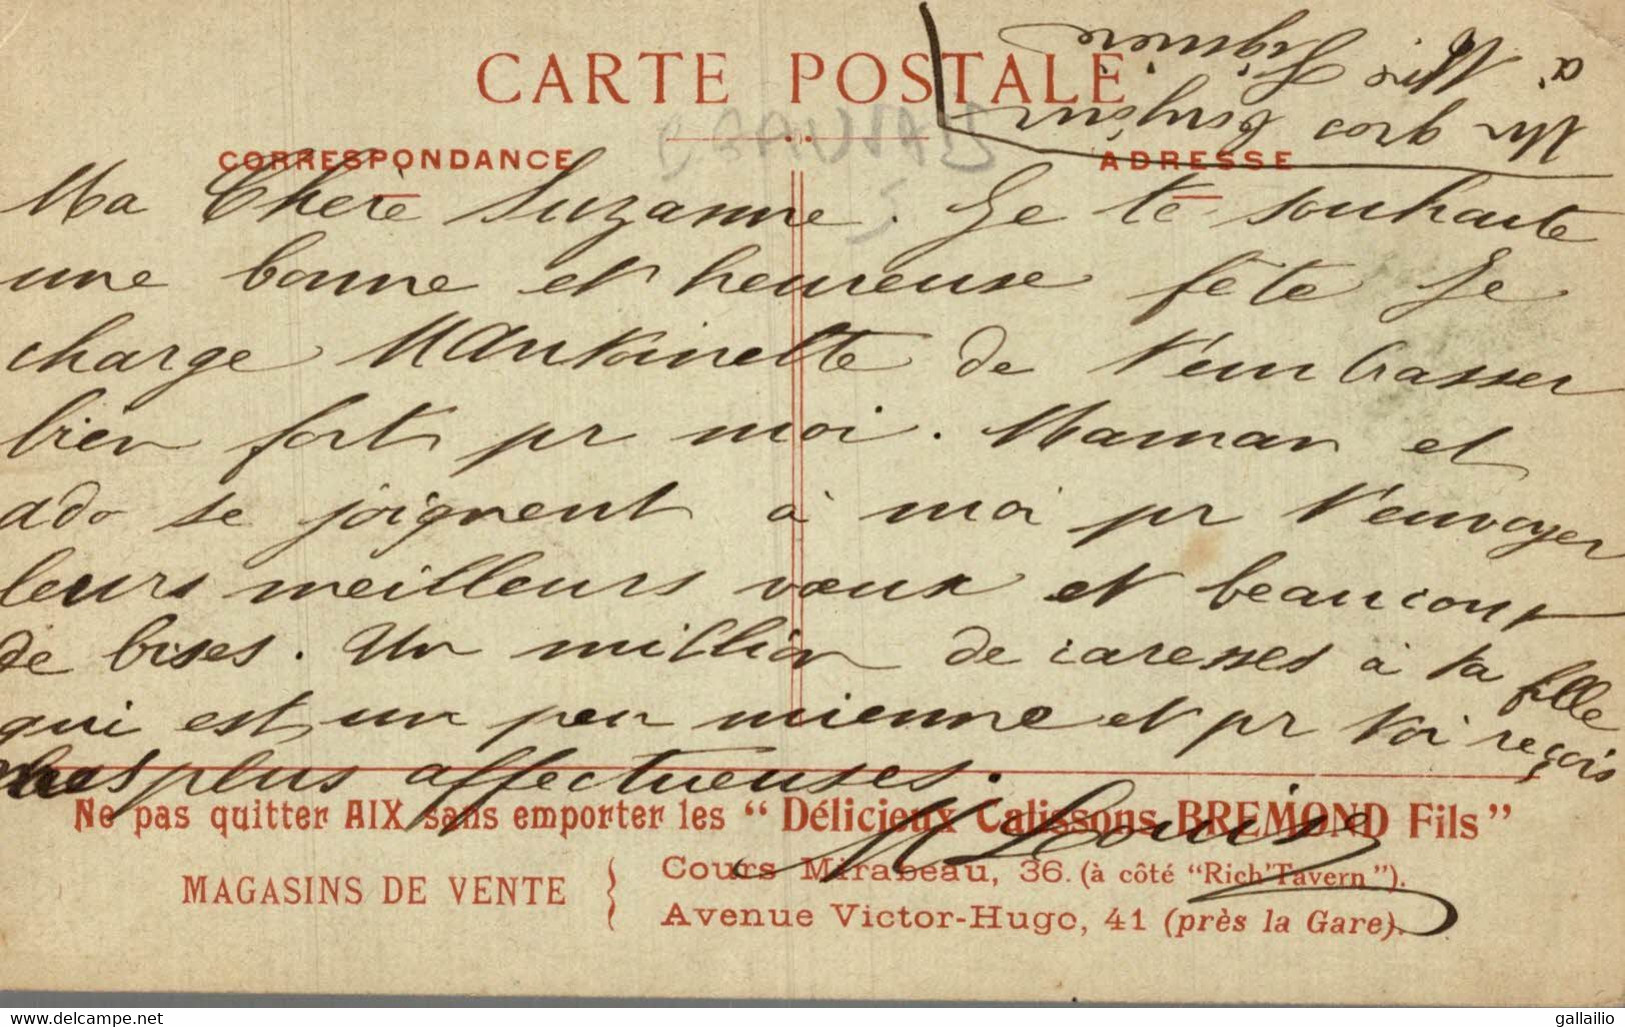 CARTE POSTALE
CORRESPONDANCE
ADRESSE
Un gros bonjour
à Mme
Ma Chère Suzanne. Je te souhaite
une bonne et heureuse fête Je
charge MAntoinette de t'embrasser
bien fort pr moi. Maman et
ado se joignent à moi pr t'envoyer
leurs meilleurs vœux et beaucoup
de bises. Un million de caresses à ta fille
qui est un peu mienne et pr toi reçois
les plus affectueuses.
M Louise
Ne pas quitter AIX sans emporter les "Délicieux Calissons BREMOND Fils"
MAGASINS DE VENTE
Cours Mirabeau, 36. (à côté "Rich'Tavern").
Avenue Victor-Hugo, 41 (près la Gare).
delcampe.net
gallailio